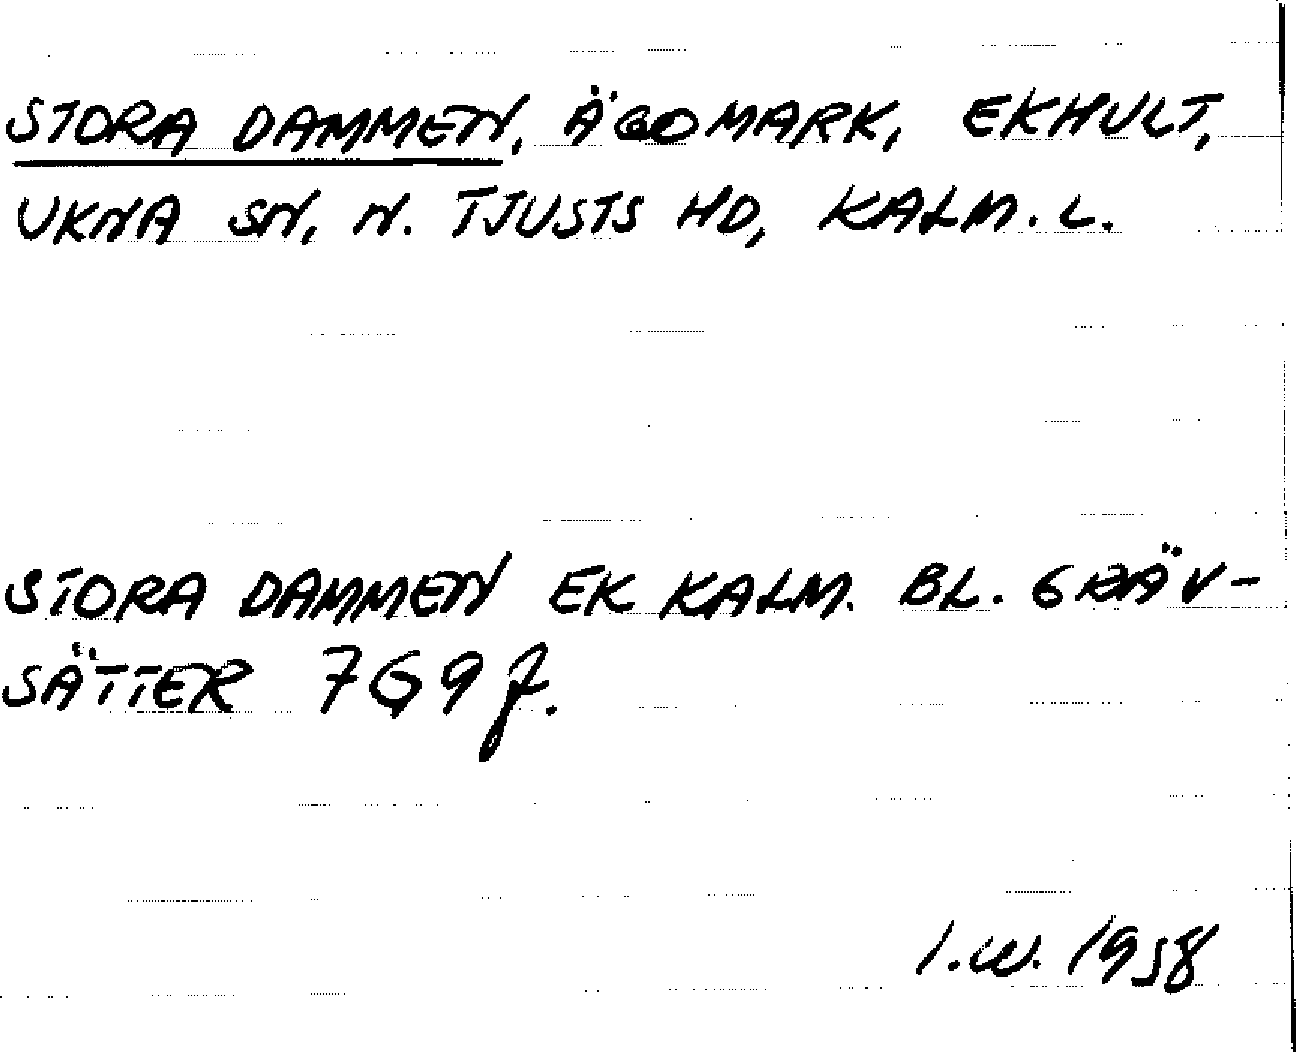 STORA DAMMEN, ÄGOMARK, EKHULT,
UKNA SN, N. TJUSTS HD, KALM. L.
STORA DAMMEN EK KALM. BL. GRÄV-
SÄTTER 7G9f.
I.W. 1958